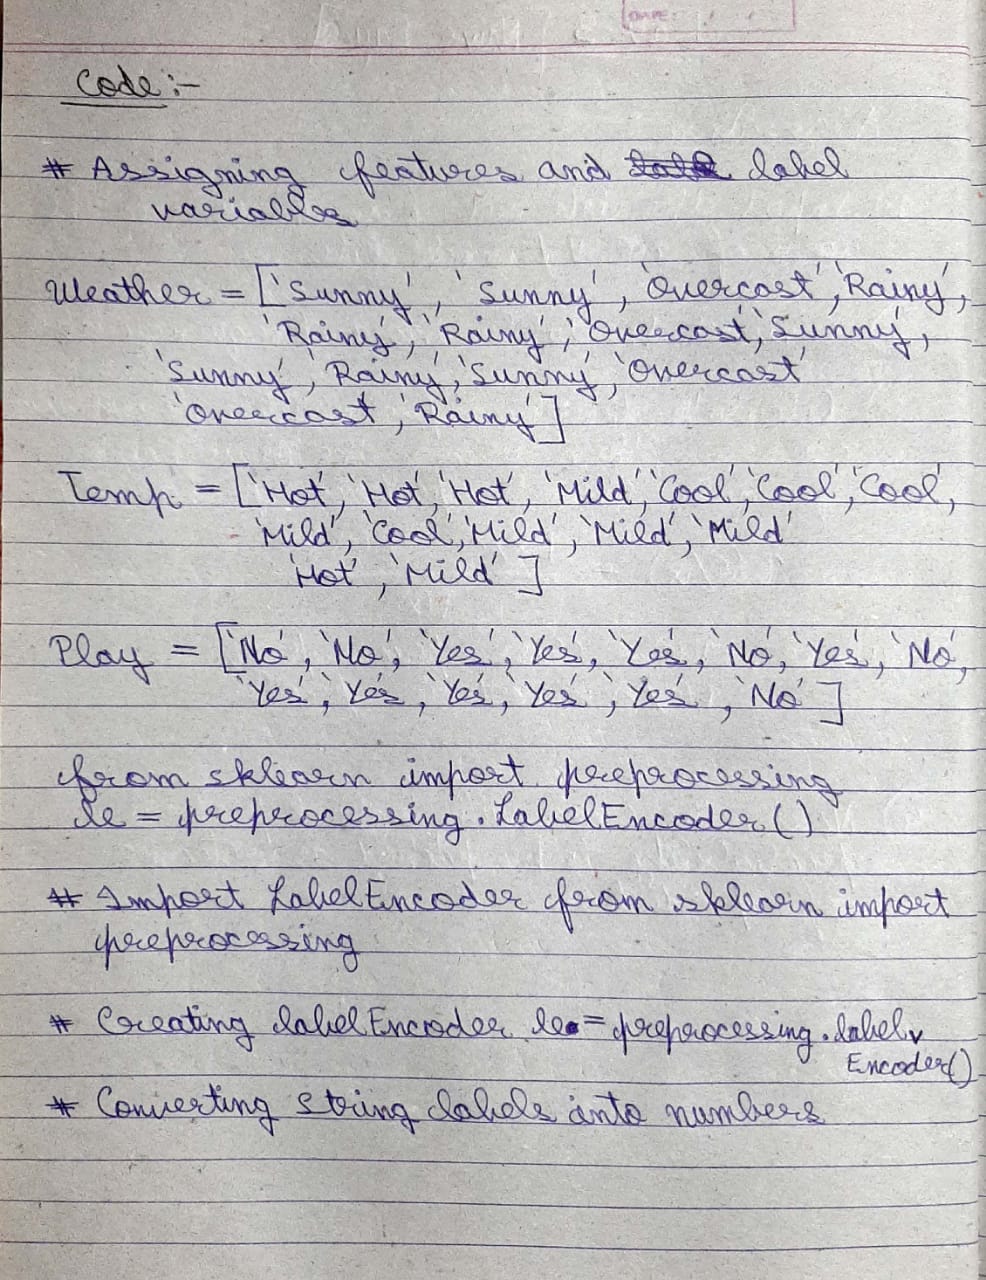 DATE:
Code :-
# Assigning features and label
variables
Weather = ['Sunny', 'Sunny', 'Overcast', 'Rainy',
'Rainy', 'Rainy', 'Overcast', 'Sunny',
'Sunny', 'Rainy', 'Sunny', 'Overcast'
'Overcast', 'Rainy']
Temp = ['Hot', 'Hot', 'Hot', 'Mild', 'Cool', 'Cool', 'Cool',
'Mild', 'Cool', 'Mild', 'Mild', 'Mild'
'Hot', 'Mild']
Play = ['No', 'No', 'Yes', 'Yes', 'Yes', 'No', 'Yes', 'No',
'Yes', 'Yes', 'Yes', 'Yes', 'Yes', 'No']
from sklearn import preprocessing
le = preprocessing.LabelEncoder()
# Import LabelEncoder from sklearn import
preprocessing
# Creating labelEncoder le = preprocessing.label
Encoder()
# Converting string labels into numbers